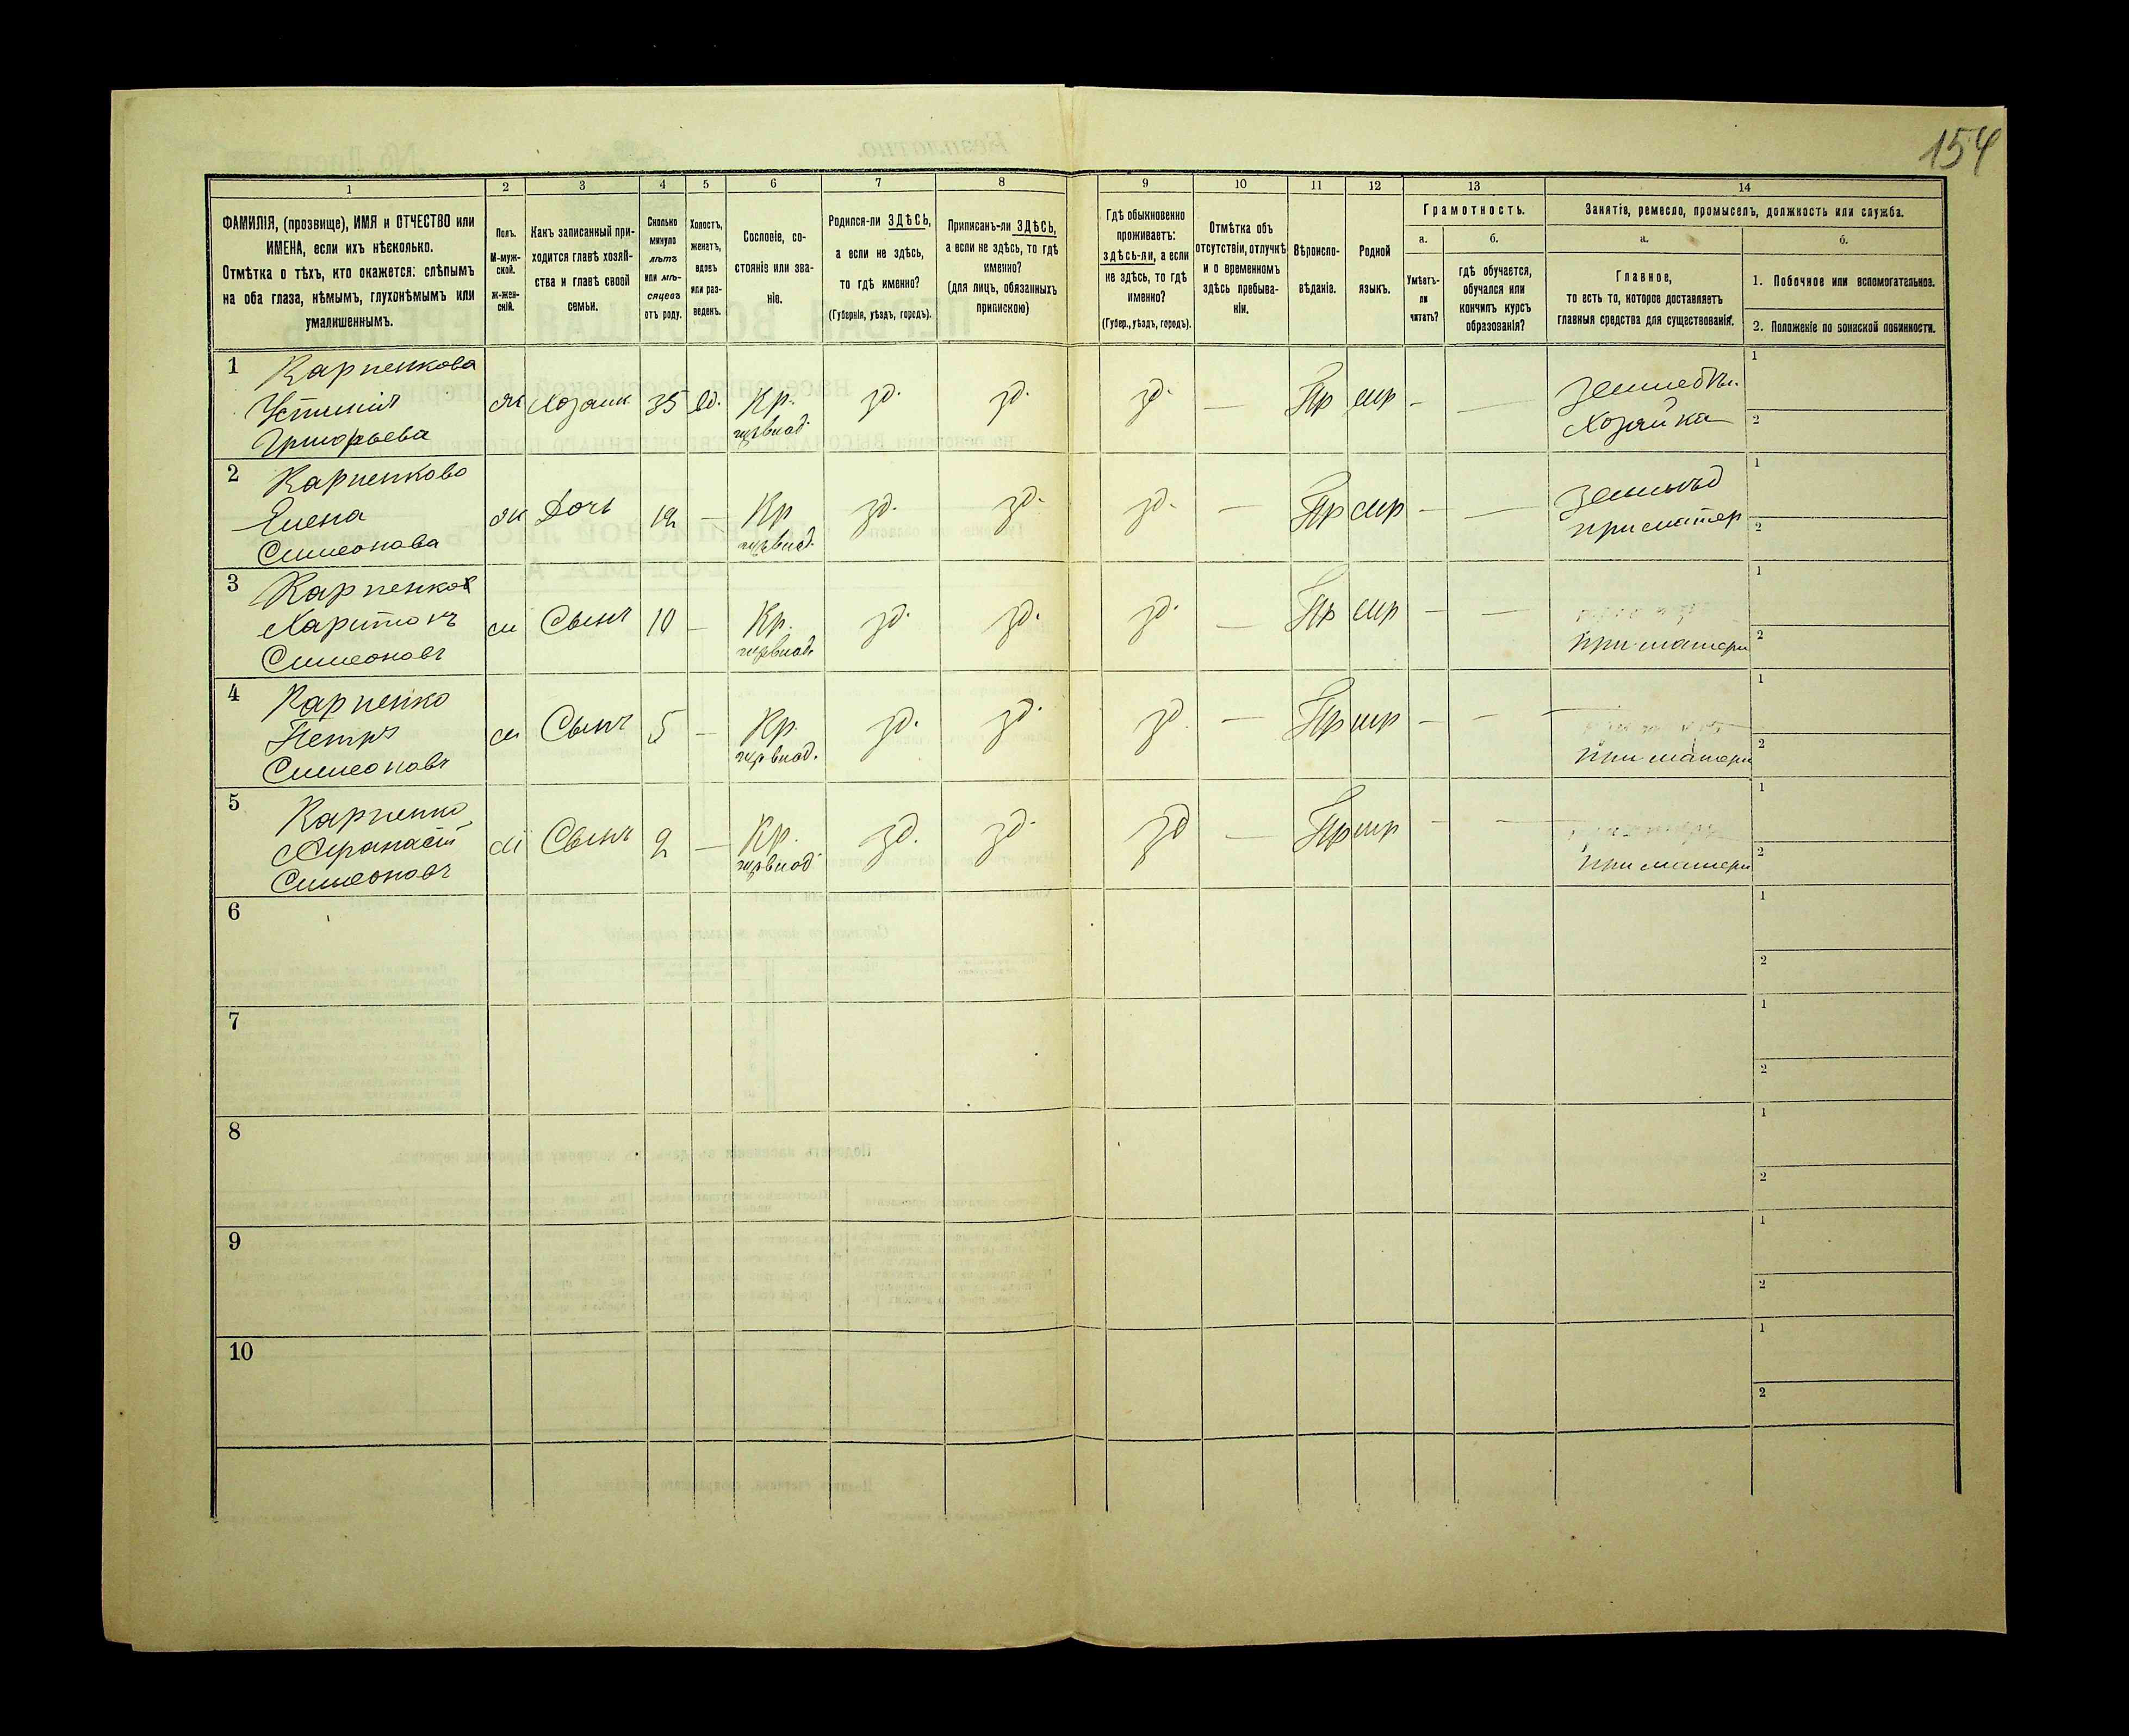 154
1 2 3 4 5 6 7 8 9 10 11 12 13 14
ФАМИЛІЯ, (прозвище), ИМЯ и ОТЧЕСТВО или
ИМЕНА, если ихъ нѣсколько.
Отмѣтка о тѣхъ, кто окажется: слѣпымъ
на оба глаза, нѣмымъ, глухонѣмымъ или
умалишеннымъ.
Полъ.
М-муж-
ской.
ж-жен-
скій.
Какъ записанный при-
ходится главѣ хозяй-
ства и главѣ своей
семьи.
Сколько
минуло
лѣтъ
или мѣ-
сяцевъ
отъ роду.
Холостъ,
женатъ,
вдовъ
или раз-
веденъ.
Сословіе, со-
стояніе или зва-
ніе.
Родился-ли ЗДѢСЬ,
а если не здѣсь,
то гдѣ именно?
(Губернія, уѣздъ, городъ).
Приписанъ-ли ЗДѢСЬ,
а если не здѣсь, то гдѣ
именно?
(для лицъ, обязанныхъ
припискою)
Гдѣ обыкновенно
проживаетъ:
здѣсь-ли, а если
не здѣсь, то гдѣ
именно?
(Губер., уѣздъ, городъ).
Отмѣтка объ
отсутствіи, отлучкѣ
и о временномъ
здѣсь пребыва-
ніи.
Вѣроиспо-
вѣданіе.
Родной
языкъ.
Грамотность.
а.
Умѣетъ-
ли
читать?
б.
гдѣ обучается,
обучался или
кончилъ курсъ
образованія?
Занятіе, ремесло, промыселъ, должность или служба.
а.
Главное,
то есть то, которое доставляетъ
главныя средства для существованія.
б.
1. Побочное или вспомогательное.
2. Положеніе по воинской повинности.
1 Карпенкова
Устинія
Григорьева
ж Хозяик 35 вд. Кр. зд. зд. зд. — Пр мр - —
Хозяйка
1
2
2 Карпенкова
Елена
Симеонова
ж Дочь 12 — Кр зд. зд. зд. — Пр мр - —
при матер
1
2
3 Карпенков
Харитонъ
Симеоновъ
м Сынъ 10 — Кр. зд. зд. зд. — Пр мр — —
при матери
1
2
4 Карпенко
Петръ
Симеоновъ
м Сынъ 5 — Кр. зд. зд. зд — Пр мр — —
при матери
1
2
5 Карпенко
Симеоновъ
м Сынъ 2 — Кр. зд. зд. зд — Пр мр - —
при матери
1
2
6
1
2
7
1
2
8
1
2
9
1
2
10
1
2